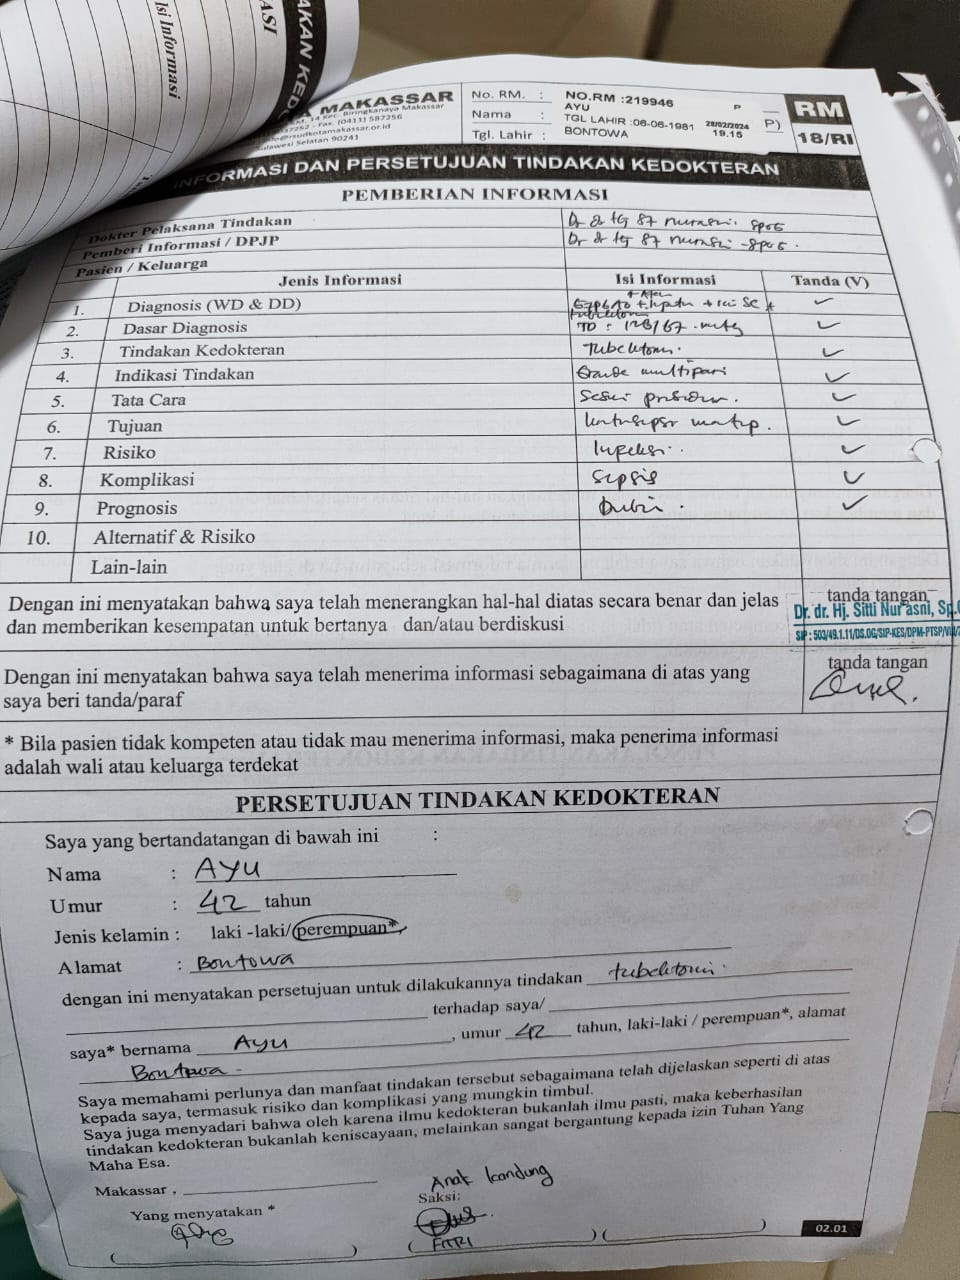 AKAN KED
ASI
Isi Informasi
MAKASSAR
M. 14 Kec. Biringkanaya Makassar
Fax. (0411) 587256
@rsudkotamakassar.or.id
Sulawesi Selatan 90241
No. RM. :
Nama :
Tgl. Lahir :
NO.RM :219946
AYU
P
TGL LAHIR :06-06-1981
28/02/2024
P)
BONTOWA
19.15
RM
18/RI
INFORMASI DAN PERSETUJUAN TINDAKAN KEDOKTERAN
PEMBERIAN INFORMASI
Dokter Pelaksana Tindakan
Pemberi Informasi / DPJP
Pasien / Keluarga
Jenis Informasi Isi Informasi Tanda (V)
1. Diagnosis (WD & DD) ✓
2. Dasar Diagnosis ✓
3. Tindakan Kedokteran Tubektomi. ✓
4. Indikasi Tindakan Grande multipari ✓
5. Tata Cara Sesuai ✓
6. Tujuan ✓
7. Risiko Infeksi. ✓
8. Komplikasi Sepsis ✓
9. Prognosis Dubia. ✓
10. Alternatif & Risiko
Lain-lain
Dengan ini menyatakan bahwa saya telah menerangkan hal-hal diatas secara benar dan jelas
dan memberikan kesempatan untuk bertanya dan/atau berdiskusi
tanda tangan
Dr. dr. Hj. Sitti Nur asni, Sp.
Dengan ini menyatakan bahwa saya telah menerima informasi sebagaimana di atas yang
saya beri tanda/paraf
tanda tangan
* Bila pasien tidak kompeten atau tidak mau menerima informasi, maka penerima informasi
adalah wali atau keluarga terdekat
PERSETUJUAN TINDAKAN KEDOKTERAN
Saya yang bertandatangan di bawah ini :
Nama : AYU
Umur : 42 tahun
Jenis kelamin : laki -laki/perempuan*
Alamat : Bontowa
dengan ini menyatakan persetujuan untuk dilakukannya tindakan tubektomi.
terhadap saya/
saya* bernama Ayu, umur 42 tahun, laki-laki / perempuan*, alamat
Bontowa
Saya memahami perlunya dan manfaat tindakan tersebut sebagaimana telah dijelaskan seperti di atas
kepada saya, termasuk risiko dan komplikasi yang mungkin timbul.
Saya juga menyadari bahwa oleh karena ilmu kedokteran bukanlah ilmu pasti, maka keberhasilan
tindakan kedokteran bukanlah keniscayaan, melainkan sangat bergantung kepada izin Tuhan Yang
Maha Esa.
Makassar ,
Anak kandung
Yang menyatakan *
Saksi:
FITRI
02.01